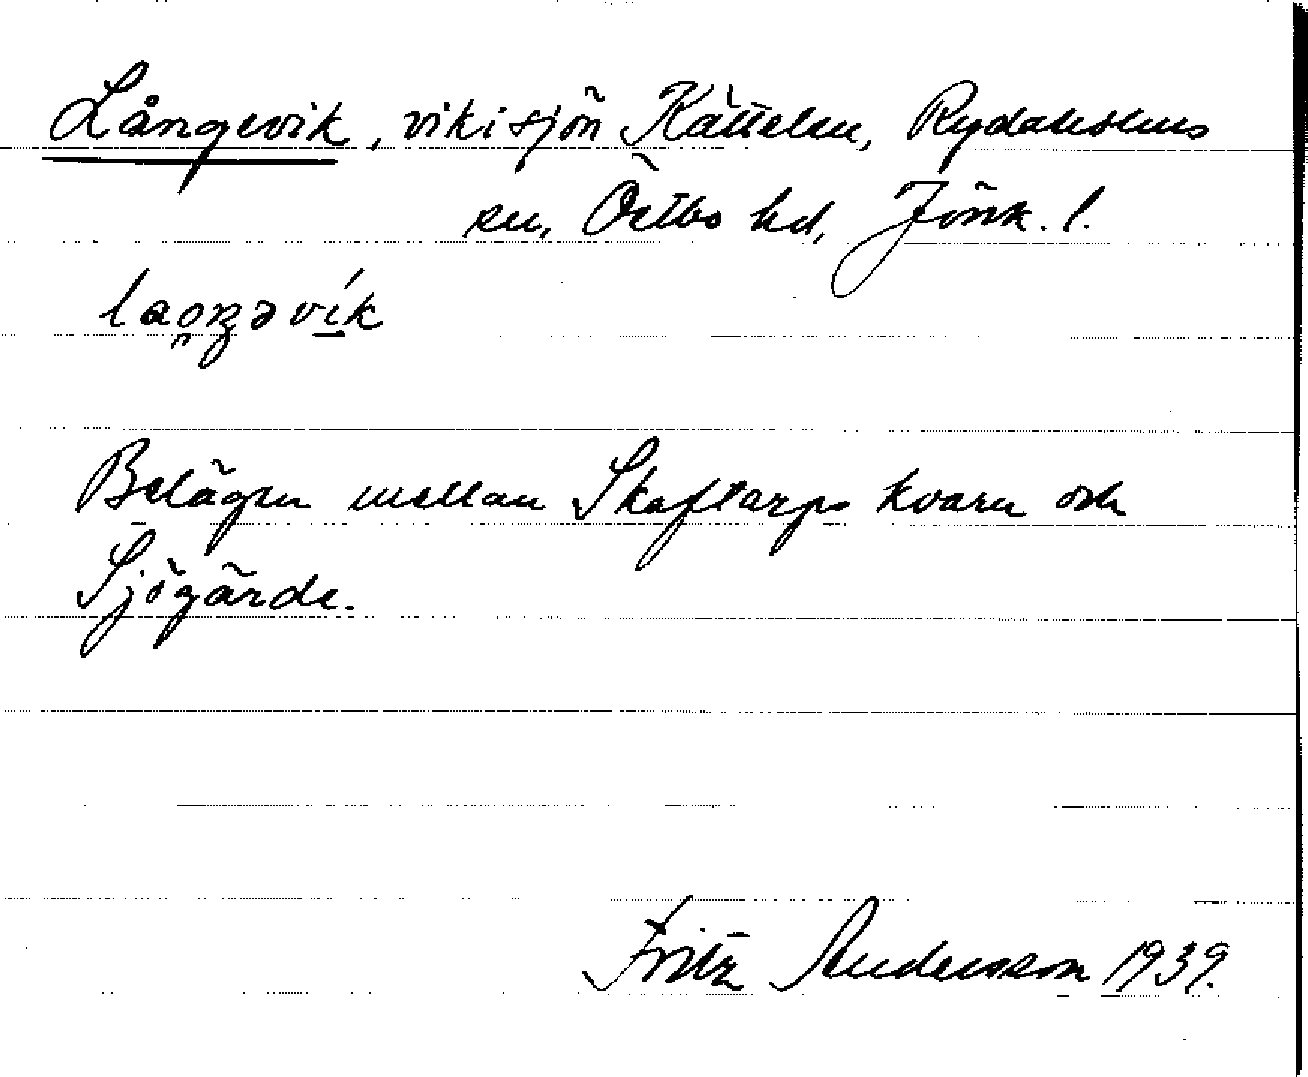 Långevik, vik i sjön Kättelen, Rydaholms
sn, Östbo hd, Jönk. l.
Belägen mellan Skaftarps kvarn och
Sjögärde.
Fritz Andersson 1939.